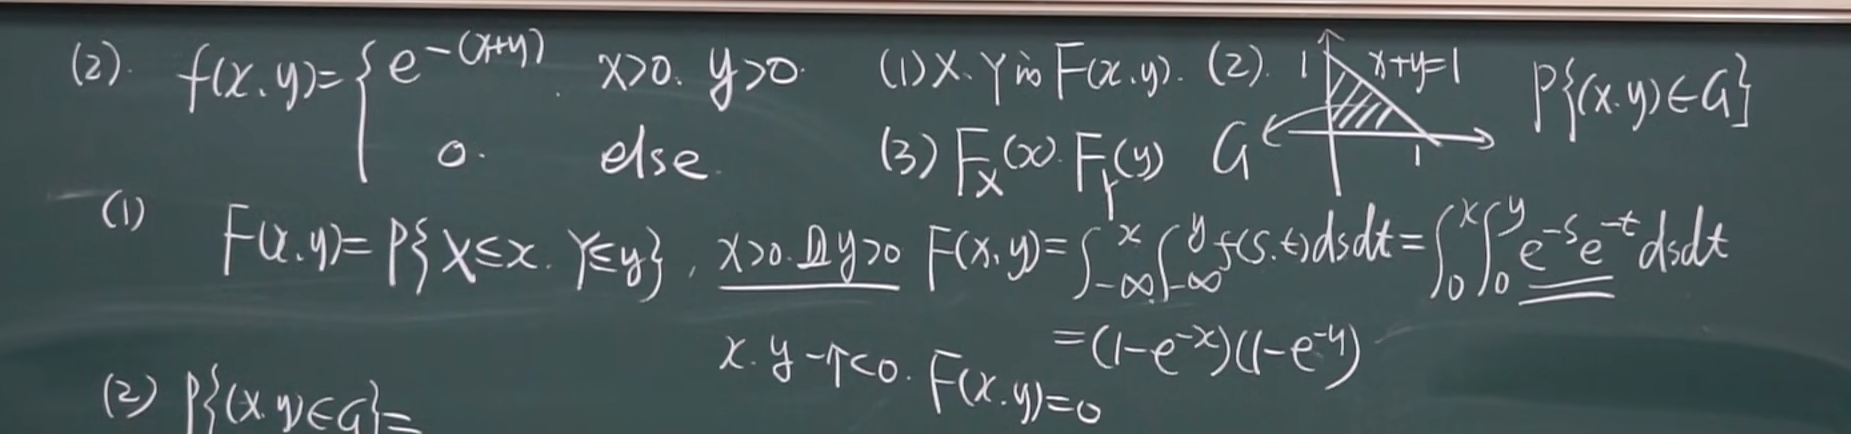 (2). f(x.y)={ e^{-(x+y)}. x>0. y>0. (1) X.Y的F(x.y). (2). 1 x+y=1 P{(x.y)∈G}
0. else. (3) F_X(x). F_Y(y) G 1
(1) F(x.y)=P{X≤x. Y≤y}, x>0.且y>0 F(x,y)=∫_{-∞}^{x}∫_{-∞}^{y}f(s.t)dsdt=∫_0^x∫_0^y e^{-s}e^{-t}dsdt
=(1-e^{-x})(1-e^{-y})
x.y一个<0. F(x.y)=0
(2) P{(x.y)∈G}=